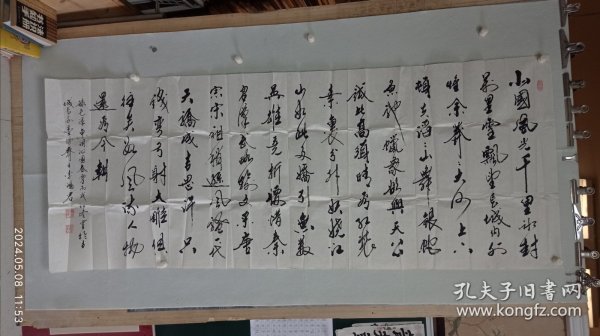 北國風光千里冰封
万里雪飄望長城内外
惟余莽莽大河上下
頓失滔滔山舞銀蛇
原馳蠟象欲與天公
試比高須晴日看紅裝
素裹分外妖嬈江
山如此多嬌引無數
英雄竞折腰惜秦
皇漢武略輸文采唐
宗宋祖稍遜風騷一代
天驕成吉思汗只
識彎弓射大雕俱
往矣數風流人物
還看今朝
2024.05.08 11:53
孔夫子旧书网
www.kongfz.com